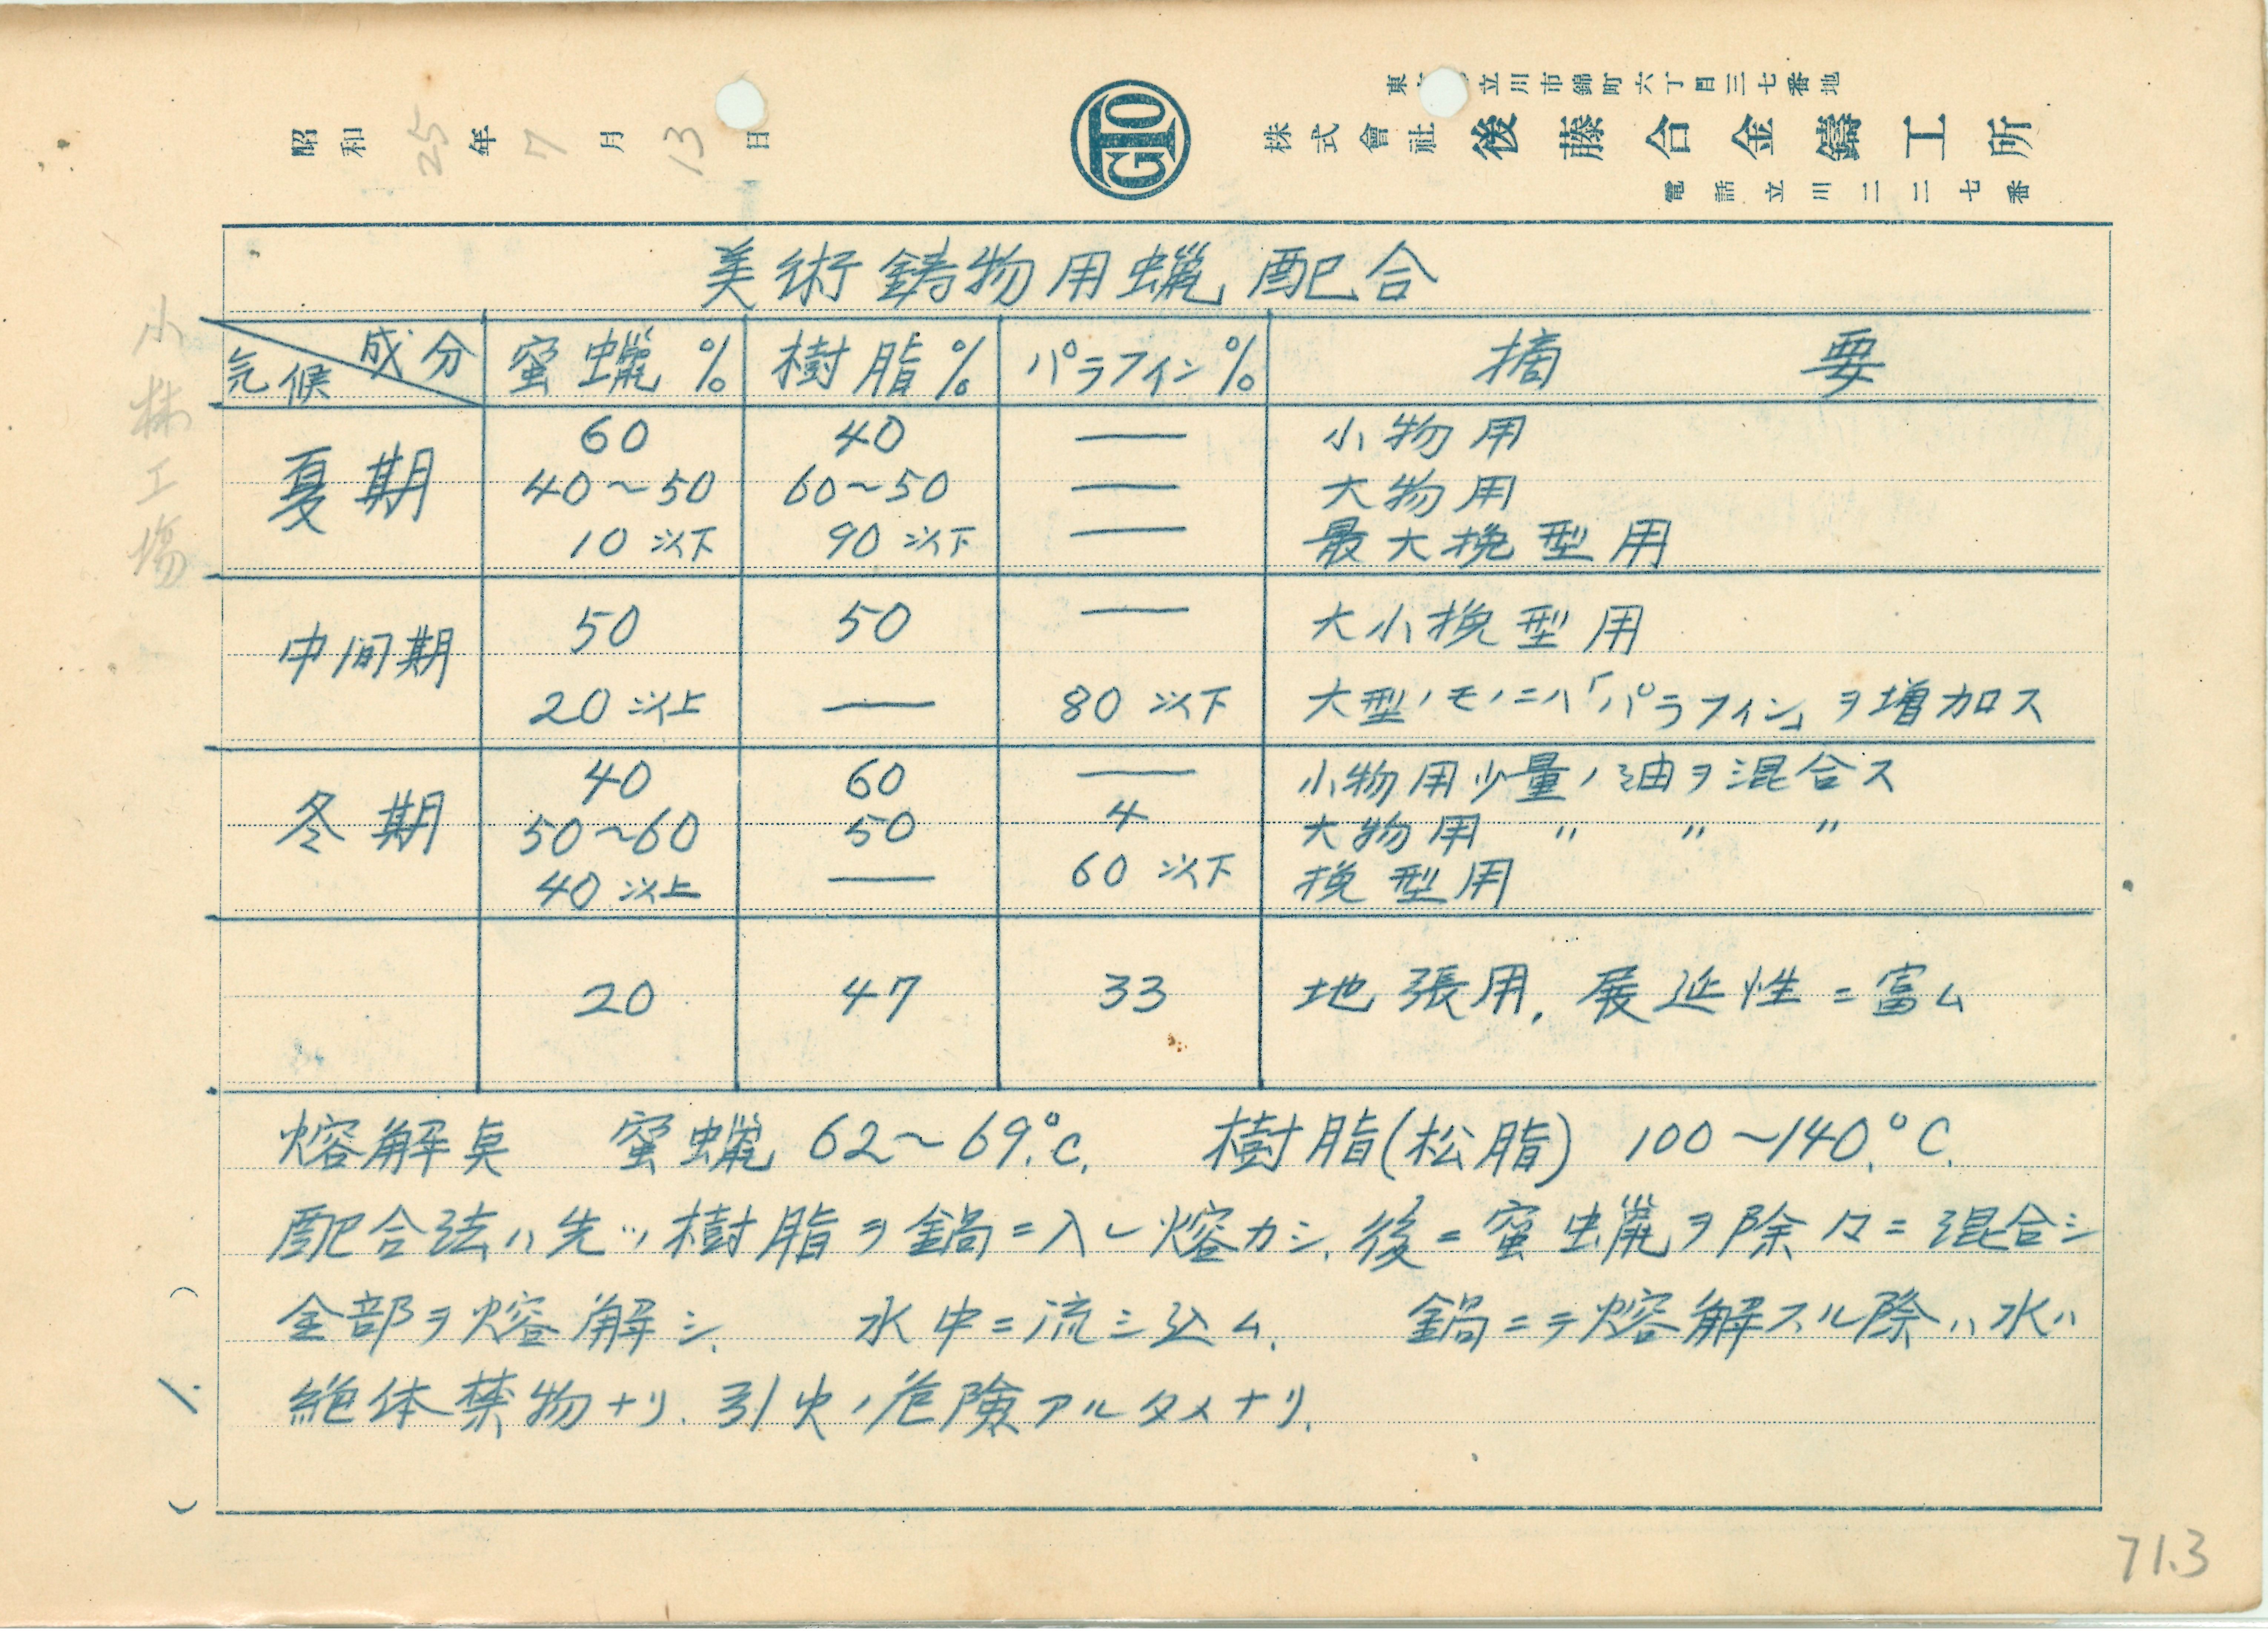 昭和25年7月13日
GTO
立川市錦町六丁目三七番地
株式會社後藤合金鑄工所
電話立川二二七番
小林工場
美術鋳物用蠟配合
成分 気候 蜜蠟% 樹脂% パラフィン% 摘要
夏期 60 40 ― 小物用
40～50 60～50 ― 大物用
10以下 90以下 ― 最大挽型用
中间期 50 50 ― 大小挽型用
20以上 ― 80以下 大型ノモノニハ「パラフィン」ヲ増加ス
冬期 40 60 ― 小物用少量ノ油ヲ混合ス
50～60 50 4 大物用 〃 〃 〃
40以上 ― 60以下 挽型用
20 47 33 地張用、展延性ニ富ム
熔解臭 蜜蠟 62～69.°C. 樹脂(松脂) 100～140.°C.
配合法ハ先ヅ樹脂ヲ鍋ニ入レ熔カシ、後ニ蜜蠟ヲ除々ニ混合シ
全部ヲ熔解シ、 水中ニ流シ込ム、 鍋ニテ熔解スル際ハ水ハ
絶体禁物ナリ、引火ノ危険アルタメナリ、
( 1. )
71.3